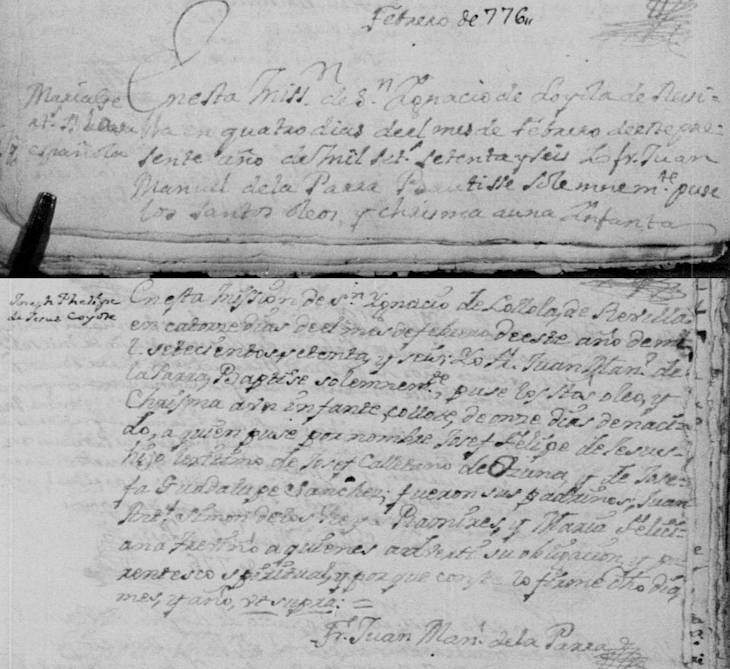 Febrero de 776,,
Maria
española
En esta Miss.n de S.n Ygnacio de Loyola de Revi-
lla en quatro dias de el mes de febrero de este pre-
sente año de mil set.s setenta y seis Yo fr. Juan
Manuel de la Parra Bautisse solemnem.te puse
los santos oleos, y chrisma a una Ynfanta
Joseph Phelipe
de Jesus Coyote
En esta Mission de S.n Ygnacio de Lollola, de Revilla
en catorse dias de el mes de febrero de este año de mi
l. setecientos setenta, y seis; Yo Fr. Juan Man.l de
la Parra, Baptise solemnem.te, y puse los Stos oleo, y
Chrisma a un infante collote, de onze dias de naci-
do, a quien puse por nombre Josef Felipe de Jesus-
hijo lexitimo de Josef Calletano de Ozuna, y de Jose-
fa Guadalupe Sanchez; fueron sus padrinos, Juan
Simon de los Reyes Ramires, y Maria Felici-
ana Treviño a quienes adverti su obligacion, y pa-
rentesco spiritual, y por que conste lo firme dho dia,
mes, y año, ut supra. =
Fr. Juan Man.l de la Parra